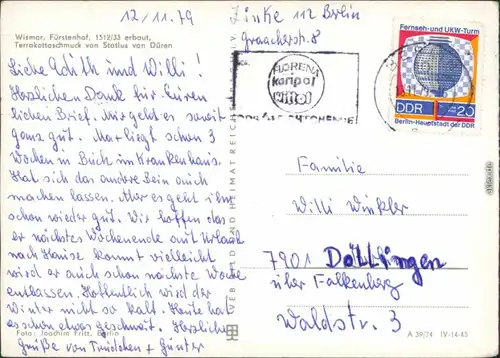 12/11.79
Linke 112 Berlin
Graacherstr. 8
Wismar, Fürstenhof, 1512/33 erbaut,
Terrakottaschmuck von Statius van Düren
Liebe Edith und Willi!
Herzlichen Dank für Euren
lieben Brief. Mir geht es soweit
ganz gut. Max liegt schon 3
Wochen in Buch im Krankenhaus.
Hat sich das andere Bein auch
machen lassen. Aber es geht ihm
schon wieder gut. Wir hoffen das
er nächstes Wochenende auf Urlaub
nach Hause kommt vielleicht
wird er auch schon nächste Woche
entlassen. Hoffentlich wird der
Winter nicht so kalt. Heute hat
es schon etwas geschneit. Herzliche
Grüße von Trudchen + Günter
Foto: Joachim Fritz, Berlin
VEB BILD UND HEIMAT REICHENBACH
FLORENA
koripol
wittol
Fernseh- und UKW-Turm
DDR 20
Berlin-Hauptstadt der DDR
Familie
Willi Winkler
7901 Döllingen
über Falkenberg
Waldstr. 3
A 39/74 IV-14-45